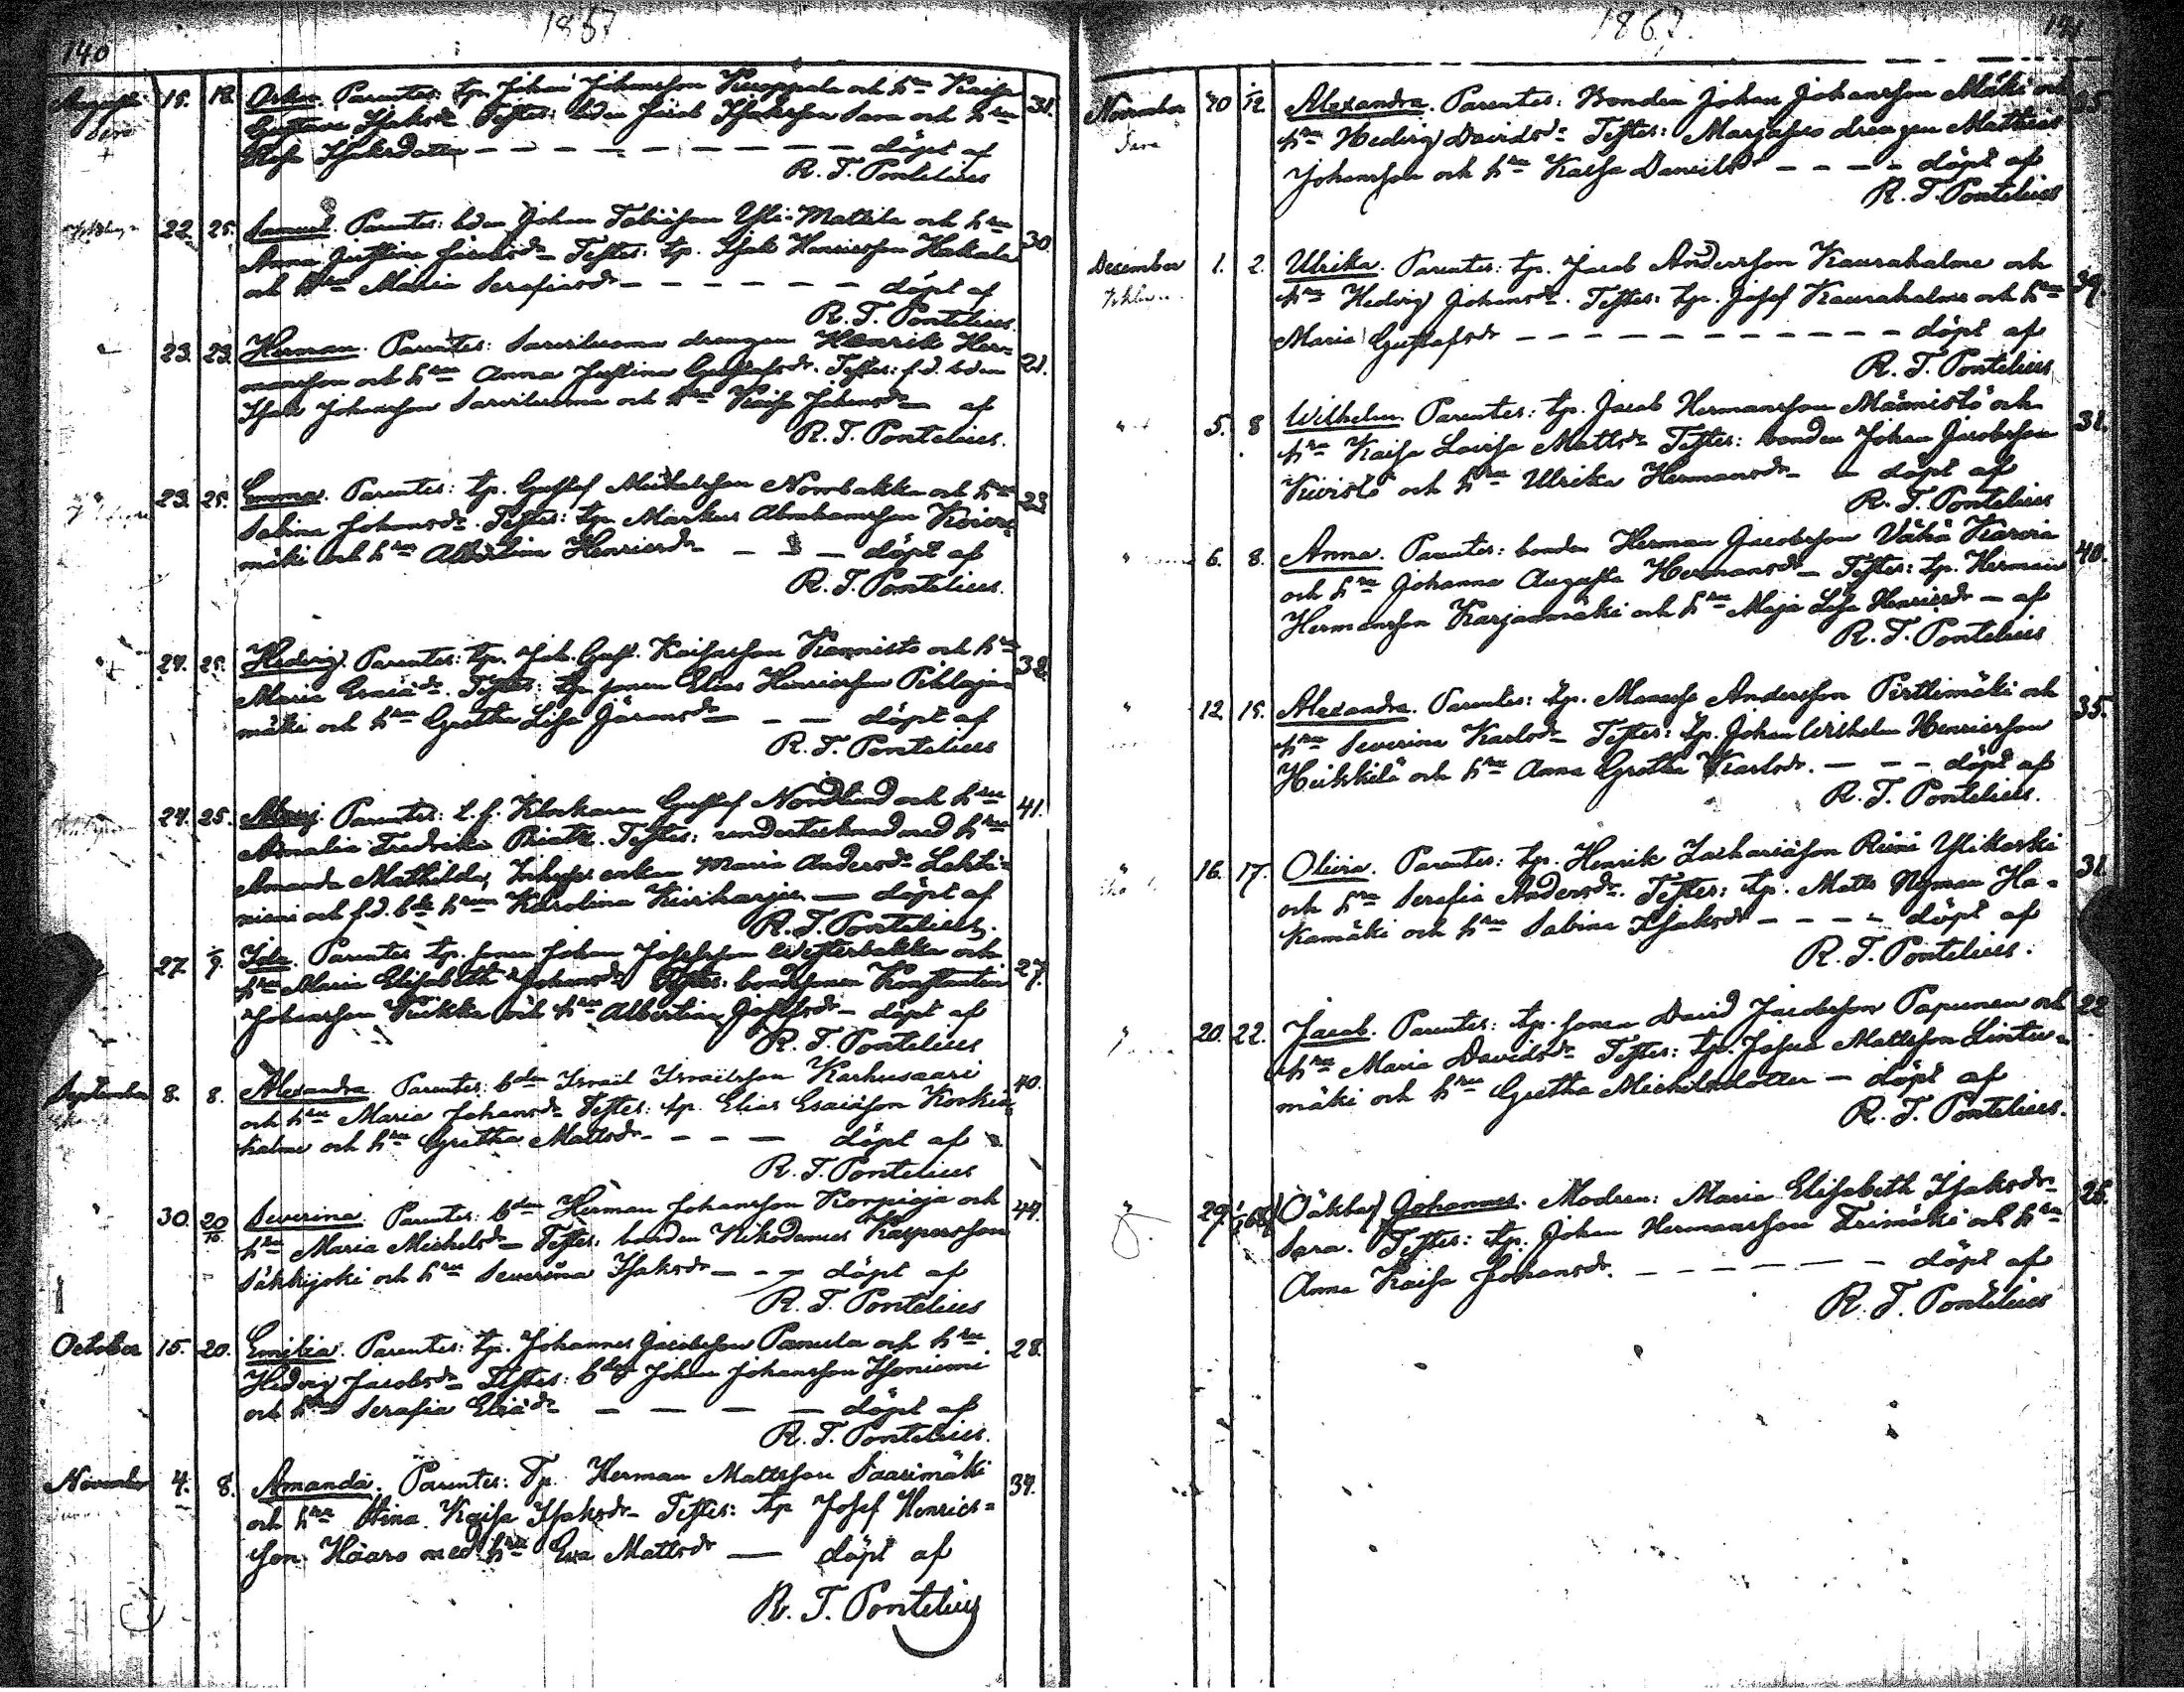 140
1867
Augusti 18. 18. Oskar. Parentes: tp. Johan Johansson Kuoppala och hru Kaisa 31.
Gustava Isaksdr Testes: bden Jacob Isaksson Sara och hru
Rosa Isaksdotter — — — — — — — — — döpt af
R. T. Pontelius
22. 25. Samuel. Parentes: bden Johan Tobiasson Yli-Mattila och hru 30
Anna Justina Jöransdr Testes: tp. Isak Henricsson Hakala
och hru Maria Serafiasdr — — — — — — döpt af
R. T. Pontelius.
23. 23. Herman. Parentes: Sarviluoma drengen Henrik Her= 21.
mansson och hru Anna Justina Gustafsdr. Testes: f.d. bden
Isak Johansson Sarviluoma och hru Kaisa Johansdr — af
R. T. Pontelius.
23. 25. Emma. Parentes: tp. Gustaf Michelsson Norrbakka och hru 23
Sabina Johansdr. Testes: tp. Markus Abrahamsson Koivu=
mäki och hru Albertina Henricsdr — — — döpt af
R. T. Pontelius.
24. 25. Hedvig. Parentes: tp. Joh. Gust. Kaisasson Kannisto och hru 32
Maria Esaiädr. Testes: tp. sonen Elias Henricsson Pihlaja=
mäki och hru Gretha Lisa Jöransdr — — — döpt af
R. T. Pontelius
24. 25. Parentes: L. f. Klockaren Gustaf Nordlund och hru 41.
Amalia Fredrika Testes: undertecknad med hru
Amanda Mathilda, Inhyses enkan Maria Andersdr Lahti=
niemi och f.d. bde hrun Karolina Kiviharju — döpt af
R. T. Pontelius.
27. 1/9. Ida. Parentes tp. sonen Johan Josefsson Westerbakka och 27.
hru Maria Elisabeth Johansdr Testes: bondsonen Konstantin
Johansson och hru Albertina Josefsdr — döpt af
R. T. Pontelius
September 8. 8. Alexandra. Parentes: bden Israël Israëlsson Karhusaari 40.
och hru Maria Johansdr Testes: tp. Elias Esaiäson Koski=
kalme och hru Gretha Mattsdr — — — — döpt af
R. T. Pontelius
30. 20/10 Severina. Parentes: bden Herman Johansson Korpioja och 44.
hru Maria Michelsdr — Testes: bonden Nikodemus Kaspersson
Säkkijoki och hru Severina Isaksdr — — — döpt af
R. T. Pontelius
October 15. 20. Emilia. Parentes: tp. Johannes Jacobsson Panula och hru 28.
Hedvig Jacobsdr Testes: bden Johan Johansson Isoniemi
och hru Serafia Eliädr — — — — döpt af
R. T. Pontelius.
November 4. 8. Amanda. Parentes: Tp. Herman Mattsson Saarimäki 34.
och hru Stina Kaisa Isaksdr — Testes: tp Josef Henrics=
son Haaro med hru Eva Mattsdr — döpt af
R. T. Pontelius
1867.
141
November 10 12. Alexandra. Parentes: Bonden Johan Johansson Mäki och 35.
hru Hedvig Davidsdr Testes: Marjasuo drengen Matthias
Johansson och hru Kaisa Danielsdr — — — — döpt af
R. T. Pontelius
December 1. 2. Ulrika. Parentes: tp. Jacob Andersson Kaurahalme och 39.
hru Hedvig Johansdr. Testes: tp. Josef Kaurahalme och hru
Maria Gustafsdr — — — — — — — — — — — döpt af
R. T. Pontelius
5. 8 Wilhelm. Parentes: tp. Jacob Hermansson Männistö och 31.
hru Kaisa Lovisa Mattsdr Testes: bonden Johan Jacobsson
Kivistö och hru Ulrika Hermansdr — — döpt af
R. T. Pontelius
6. 8. Anna. Parentes: bonden Herman Jacobsson Vähä Karvia 40.
och hru Johanna Augusta Hermansdr — Testes: tp. Herman
Hermansson Karjanmäki och hru Maja Lisa Henricsdr — af
R. T. Pontelius
12. 15. Alexandra. Parentes: tp. Manasse Andersson Pirttimäki och 35.
hru Severina Karlsdr — Testes: tp. Johan Wilhelm Henricsson
Heikkilä och hru Anna Gretha Karlsdr. — — — döpt af
R. T. Pontelius.
16. 17. Olivia. Parentes: tp. Henrik Zachariäson Riimi Ylikoski 31
och hru Serafia Andersdr. Testes: tp. Matts Nyman Ha=
kamäki och hru Sabina Isaksdr — — — — döpt af
R. T. Pontelius.
20. 22. Jacob. Parentes: tp. sonen David Jacobsson Papunen och 22
hru Maria Davidsdr Testes: tp. Josua Mattsson Lintu=
mäki och hru Gretha Michelsdotter — döpt af
R. T. Pontelius.
29. 1/1 68 (Oäkta) Johannes. Modren: Maria Elisabeth Isaksdr 26.
Sara. Testes: tp. Johan Hermansson Trimäki och hru
Anna Kaisa Johansdr. — — — — — — döpt af
R. T. Pontelius